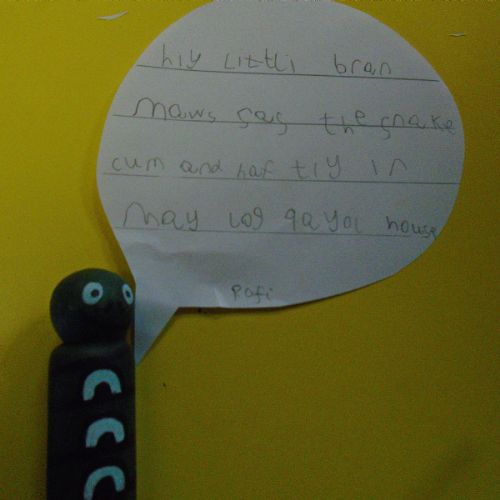 hiy Little bran
maws sas the snake
cum and haf tiy in
may log qayoi house
Pofi